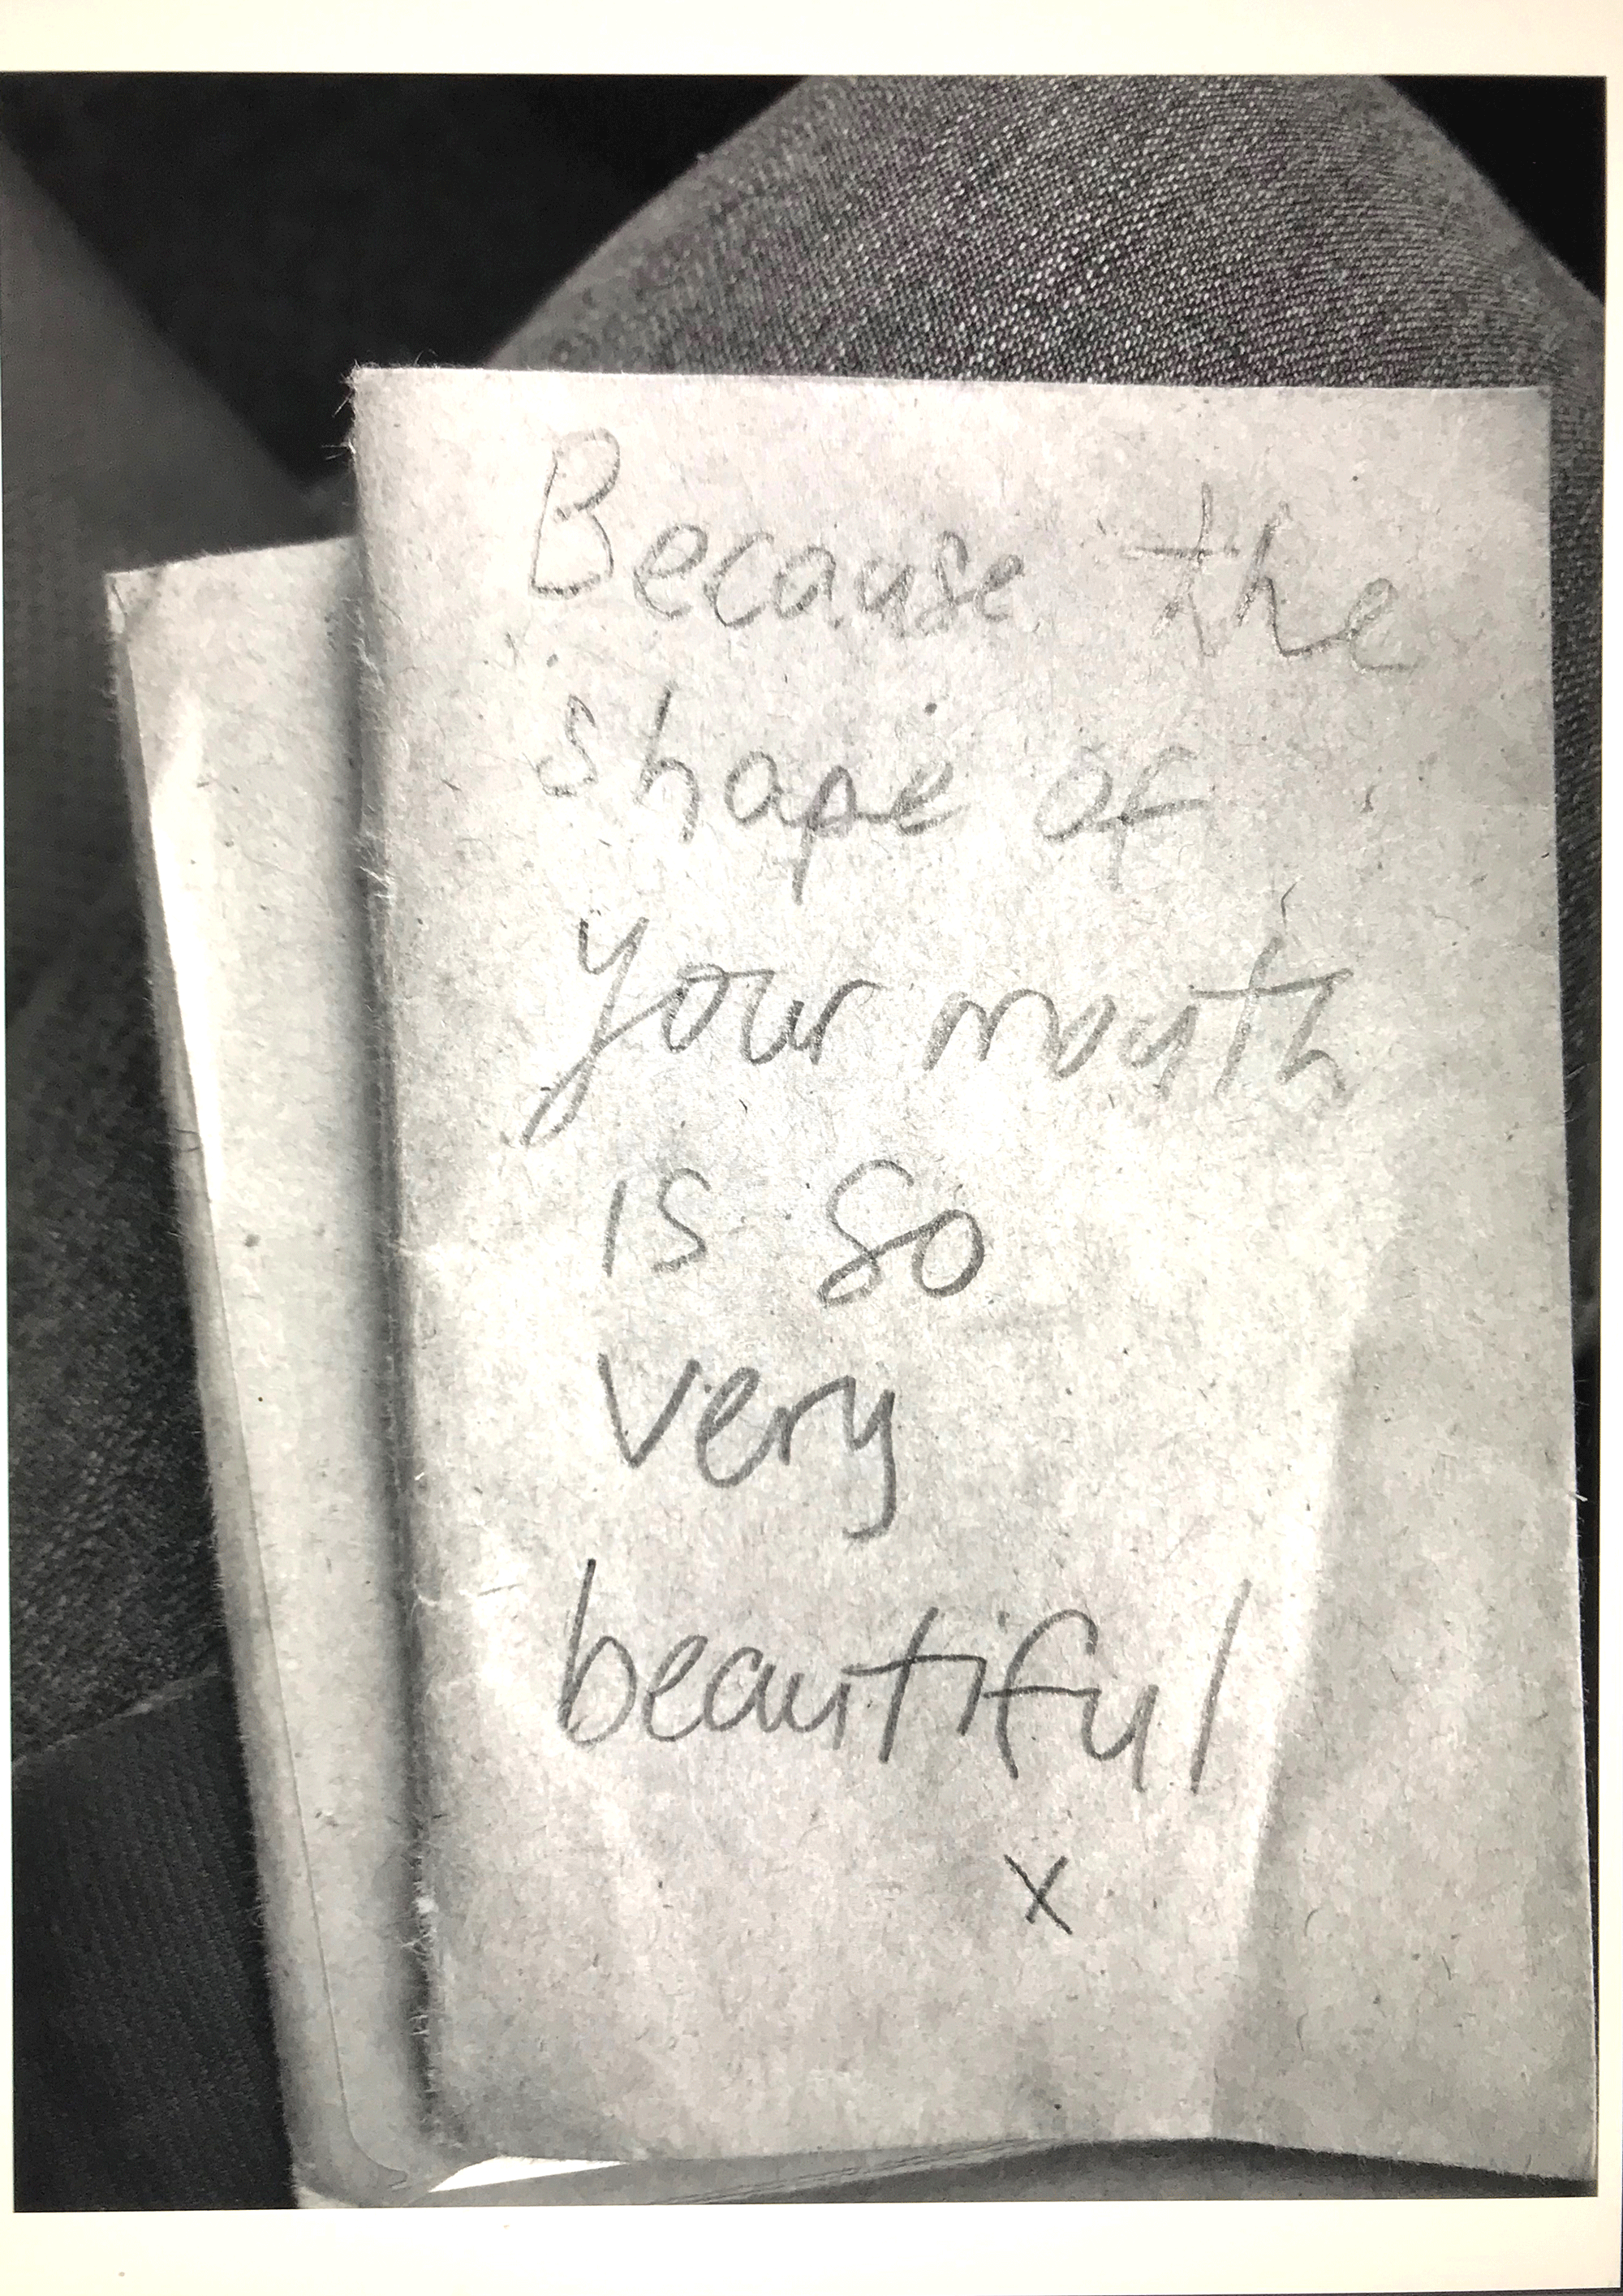 Because the
shape of
your mouth
is so
very
beautiful
x